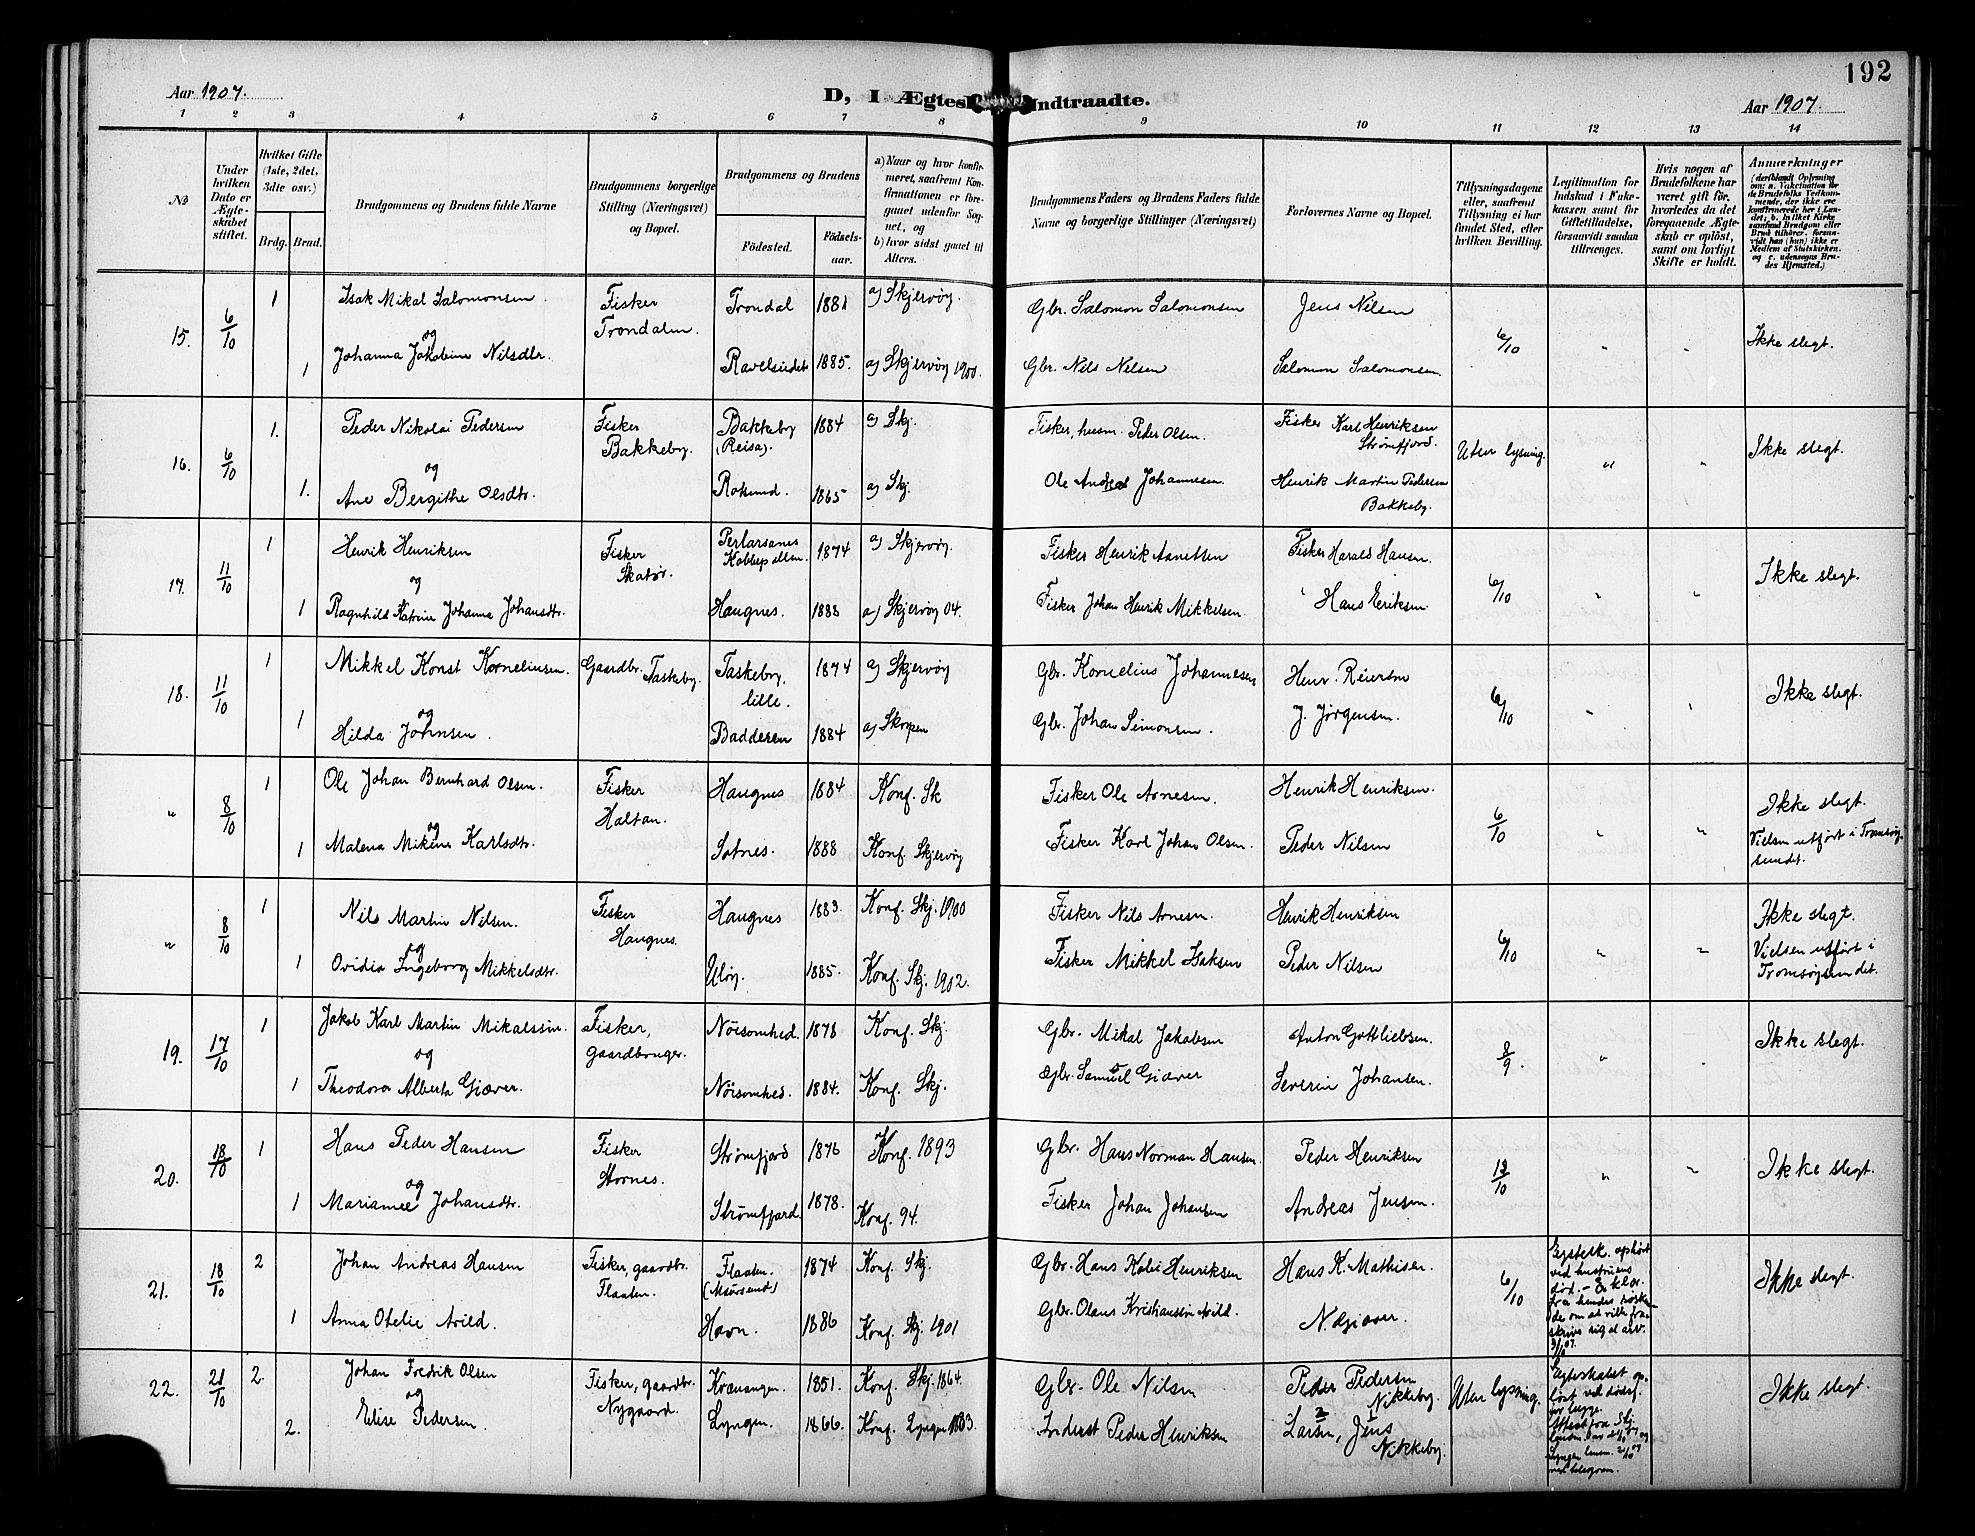 192
Aar 1907.
D, I Ægtes
Indtraadte.
Aar 1907.
1 2 3 4 5 6 7 8 9 10 11 12 13 14
No
Under hvilken Dato er Ægteskabet stiftet.
Hvilket Gifte (1ste, 2det, 3die osv.)
Brdg. Brud.
Brudgommens og Brudens fulde Navne
Brudgommens borgerlige Stilling (Næringsvei) og Bopæl.
Brudgommens og Brudens
Fødested.
Fødselsaar.
a) Naar og hvor konfirmeret, saafremt Konfirmationen er foregaaet udenfor Sognet, og
b) hvor sidst gaaet til Alters.
Brudgommens Faders og Brudens Faders fulde Navne og borgerlige Stillinger (Næringsvei)
Forlovernes Navne og Bopæl.
Tillysningsdagene eller, saafremt Tillysning ei har fundet Sted, efter hvilken Bevilling.
Legitimation for Indskud i Fakekassen samt for Giftetilladelse, forsaavidt saadan tiltrænges.
Hvis nogen af Brudefolkene har været gift før, hvorledes da det foregaaende Ægteskab er opløst, samt om lovligt Skifte er holdt.
Anmærkninger
(deriblandt Oplysning om: a. Vakcination for de Brudefolks Vedkommende, der ikke ere konfirmerede her i Landet; b. hvilket Kirkesamfund Brudgom eller Brud tilhører, forsaavidt han (hun) ikke er Medlem af Statskirken. og c. udensogns Brudes Hjemsted.)
15. 6/10 1 Isak Mikal Salomonsen Fisker Trondalen. Trondal 1881 a) Skjervøy. Gbr. Salomon Salomonsen Jens Nilsen 6/10 " " Ikke slegt.
og
1 Johanna Jakobine Nilsdtr. Ravelseidet 1885. a) Skjervøy 1900. Gbr. Nils Nilsen Salomon Salomonsen
16. 6/10 1. Peder Nikolai Pedersen Fisker Bakkeby. Bakkeby (Reisa). 1884 a) Skj. Fisker, husm. Peder Olsen. Fisker Karl Henriksen Strømfjord. Uten lysning. " " Ikke slegt.
og
1. Ane Bergithe Olsdtr. Roksund. 1865 a) Skj. Ole Andreas Johannesen. Henrik Martin Pedersen Bakkeby.
17. 11/10 1 Henrik Henriksen Fisker Skatør. 1874 a) Skjervøy. Fisker Henrik Fisker Harald Hansen. 6/10 " " Ikke slegt.
og
1 Ragnhild Katrine Johanna Johansdtr. Haugnes. 1888 a) Skjervøy 04. Fisker Johan Henrik Mikkelsen. " Hans Eriksen
18. 11/10 1 Mikkel Konst Korneliusen. Gaardbr. Taskeby. Taskeby, lille. 1874 a) Skjervøy Gbr. Kornelius Johannesen Henr. Reiersen 6/10 " " Ikke slegt.
og
1 Hilda Johnsen. Badderen 1884 a) Skorpen Gbr. Johan Simonsen. J. Jørgensen.
" 8/10 1 Ole Johan Bernhard Olsen. Fisker Haltan. Haugnes 1884 Konf. Sk Fisker Ole Arnesen. Henrik Henriksen. 6/10 " " Ikke slegt.
og
1 Malena Mikine Karlsdtr. Sotnes. 1888 Konf. Skjervøy Fisker Karl Johan Olsen. Peder Nilsen Vielsen utført i Tromsøysundet.
" 8/10 1 Nils Martin Nilsen. Fisker Haugnes. Haugnes 1883. Konf. Skj. 1900 Fisker Nils Arnesen. Henrik Henriksen 6/10 " " Ikke slegt.
og
1 Ovidia Ingeborg Mikkelsdtr. Uløy. 1885. Konf. Skj. 1902. Fisker Mikkel Isaksen Peder Nilsen Vielsen utført i Tromsøysundet.
19. 17/10 1 Jakob Karl Martin Mikalssøn. Fisker, gaardbruger. Nöisomhed. 1878 Konf. Skj. Gbr. Mikal Jakobsen Anton Gottliebsen. 8/9. " " Ikke slegt.
og
1 Theodora Alberta Giæver. Nöisomhed. 1884. Konf. Skj. Gbr. Samuel Giæver Severin Johansen.
20. 18/10 1 Hans Peder Hansen Fisker Stornes. Strømfjord 1876 Konf. 1893 Gbr. Hans Norman Hansen. Peder Henriksen 13/10 " " Ikke slegt.
og
1 Mariamee Johansdtr. Strømfjord. 1878. Konf. 94. Fisker Johan Johansen Andreas Jensen.
21. 18/10 2 Johan Andreas Hansen Fisker, gaardbr. Flaaten. Flaaten. 1874 Konf. Skj. Gbr. Hans Henriksen Hans K. Mathisen. 6/10 Egtesk. ophørt ved hustruens død. Ikke slegt.
1 Anna Otelie Arild. Havn. 1886 Konf. Skj. 1901 Gbr. Olaus Kristiansen Arild. N. Giæver.
22. 21/10 2. Johan Fredrik Olsen Fisker, gaardbr. Nygaard. Kvænangen. 1851. Konf. Skj. 1864. Gbr. Ole Nilsen Peder Pedersen Nikkeby. Uten lysning. Egteskabet opløst ved dødsf. Ikke slegt.
og
2. Elise Pedersen. Lyngen. 1866. Konf. Lyngen 1883. Inderst Peder Henriksen Larsen, Jens Nikkeby.